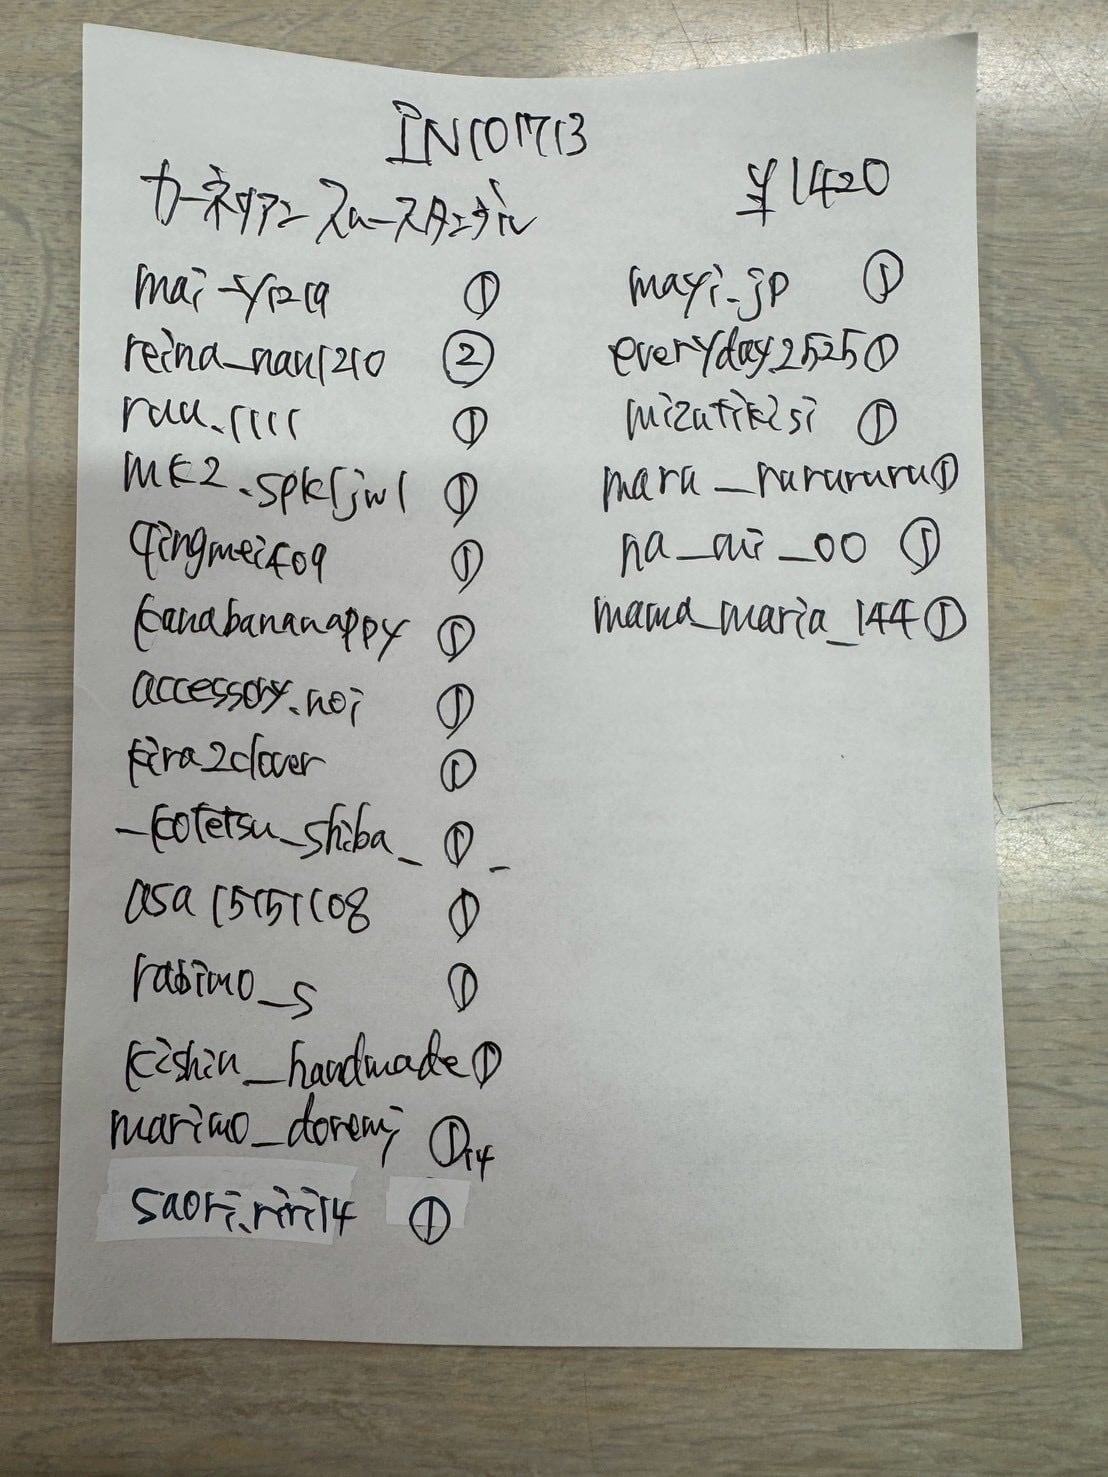 IN101713
カーネリアン スムースタンブル
¥1420
mai-y1219 ①
reina_nau1210 ②
ruu.1111 ①
mk2.spk1jw1 ①
qingmei409 ①
kanabananappy ①
accessory.noi ①
kira2clover ①
_kotetsu_shiba_ ① _
asa15151108 ①
rabimo_s ①
kishin_handmade ①
marimo_doremi ① 14
saori.riri14 ①
mayi.jp ①
everyday2525 ①
mizutikisi ①
maru_rurururu ①
na_mi_00 ①
mama_maria_144 ①